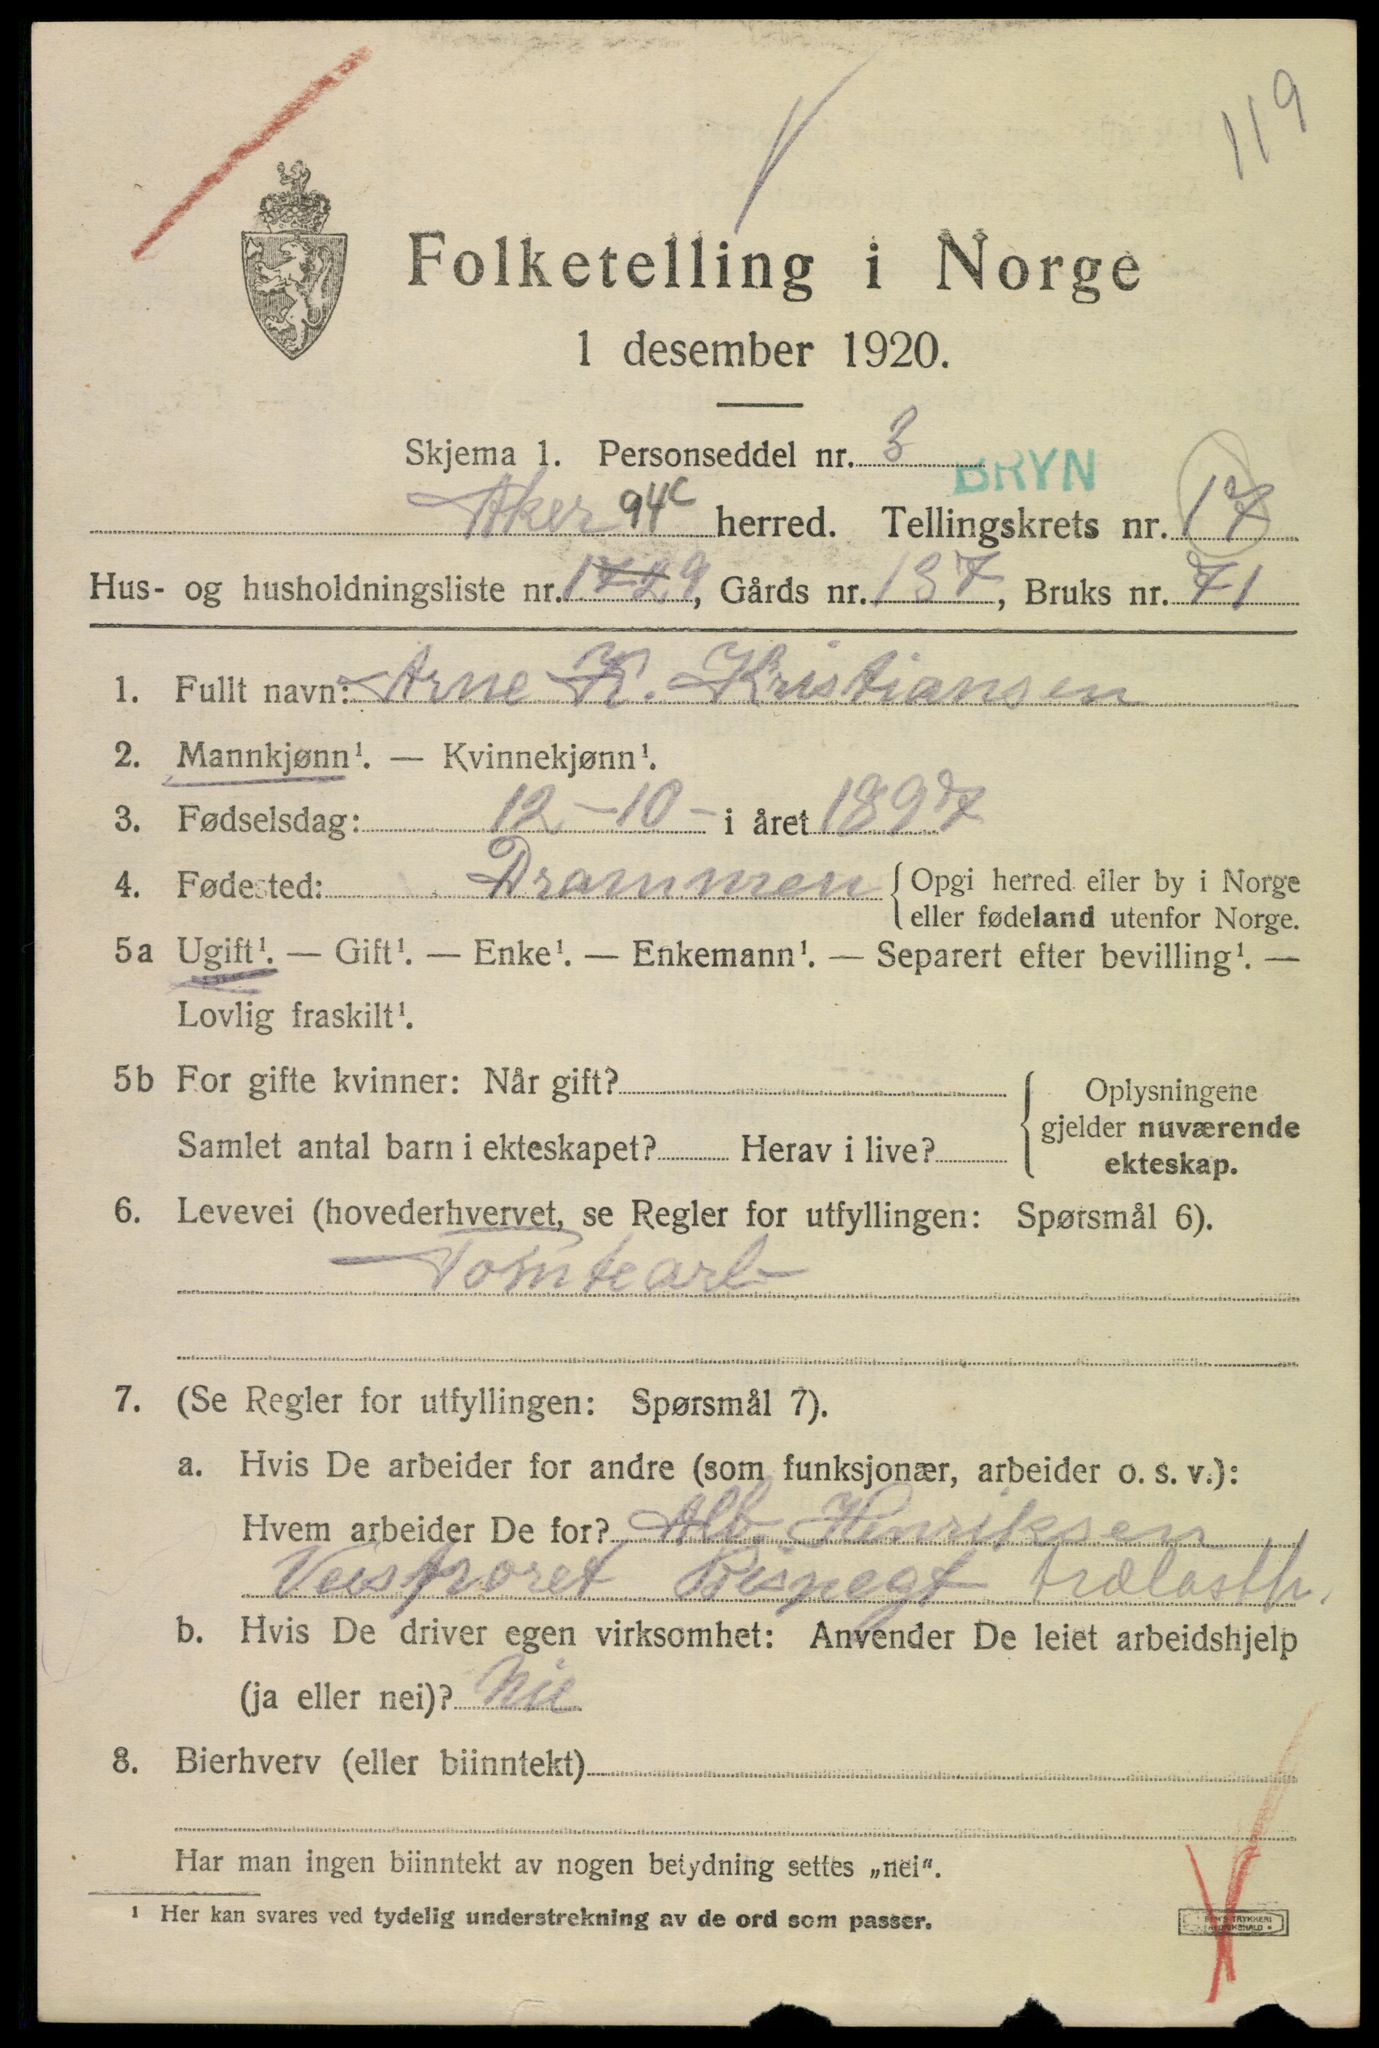 119
Folketelling i Norge
1 desember 1920.
Skjema 1. Personseddel nr. 3
BRYN
Aker 94c herred. Tellingskrets nr. 17
Hus- og husholdningsliste nr. 1729, Gårds nr. 137, Bruks nr. 71
1. Fullt navn: Arne K. Kristiansen
2. Mannkjønn¹. — Kvinnekjønn¹.
3. Fødselsdag: 12-10- i året 1897
4. Fødested: Drammen {Opgi herred eller by i Norge
eller fødeland utenfor Norge.
5a Ugift¹. — Gift¹. — Enke¹. — Enkemann¹. — Separert efter bevilling¹. —
Lovlig fraskilt¹.
5b For gifte kvinner: Når gift?
Samlet antal barn i ekteskapet? Herav i live?
{Oplysningene
gjelder nuværende
ekteskap.
6. Levevei (hovederhvervet, se Regler for utfyllingen: Spørsmål 6).
Tomtearb
7. (Se Regler for utfyllingen: Spørsmål 7).
a. Hvis De arbeider for andre (som funksjonær, arbeider o. s. v.):
Hvem arbeider De for? Alb. Henriksen
Bispegt trælasth.
b. Hvis De driver egen virksomhet: Anvender De leiet arbeidshjelp
(ja eller nei)? Nie
8. Bierhverv (eller biinntekt)
Har man ingen biinntekt av nogen betydning settes „nei“.
¹ Her kan svares ved tydelig understrekning av de ord som passer.